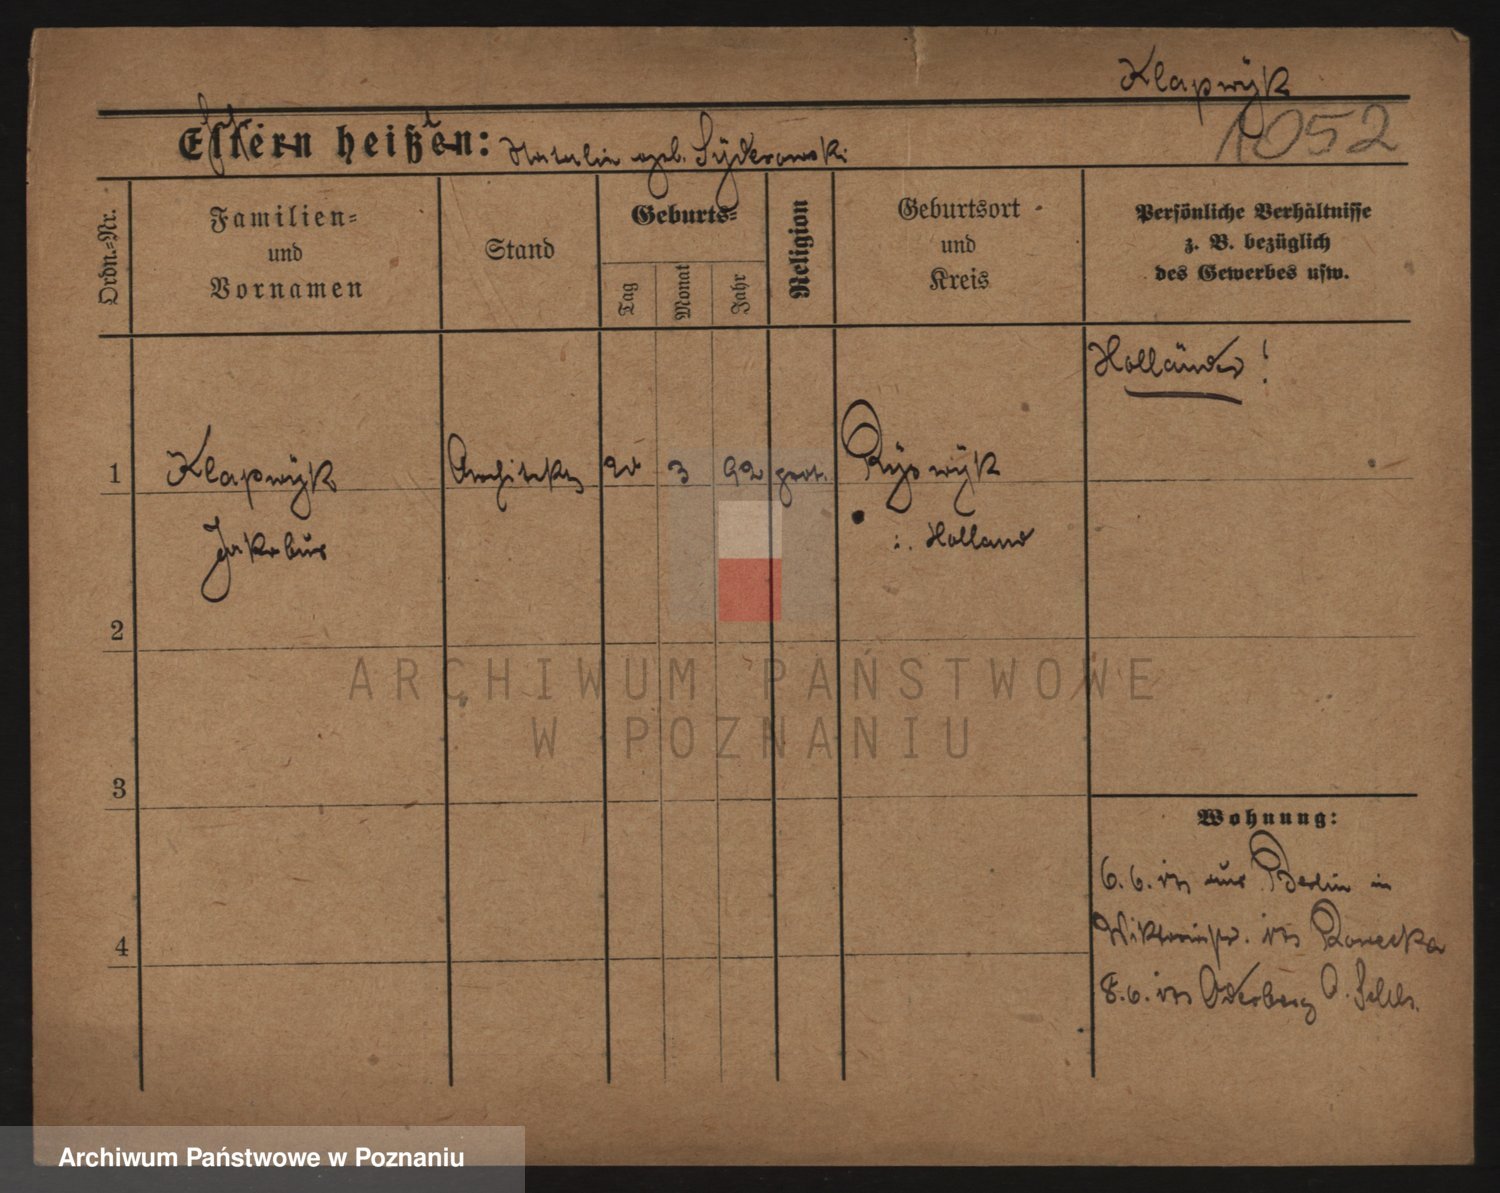 Klapwijk
1052
Eltern heißen: Natalie geb. Syderowski
Ordn.-Nr.
Familien=
und
Vornamen
Stand
Geburts=
Tag
Monat
Jahr
Religion
Geburtsort
und
Kreis
Persönliche Verhältnisse
z. B. bezüglich
des Gewerbes usw.
Holländer!
1 Klapwijk Architekt 3 92 prot. Ryswijk
Jakobus i. Holland
2
ARCHIWUM PAŃSTWOWE
W POZNANIU
3
Wohnung:
6.6. aus Berlin in
4
8.6. Oderberg O. Schls.
Archiwum Państwowe w Poznaniu